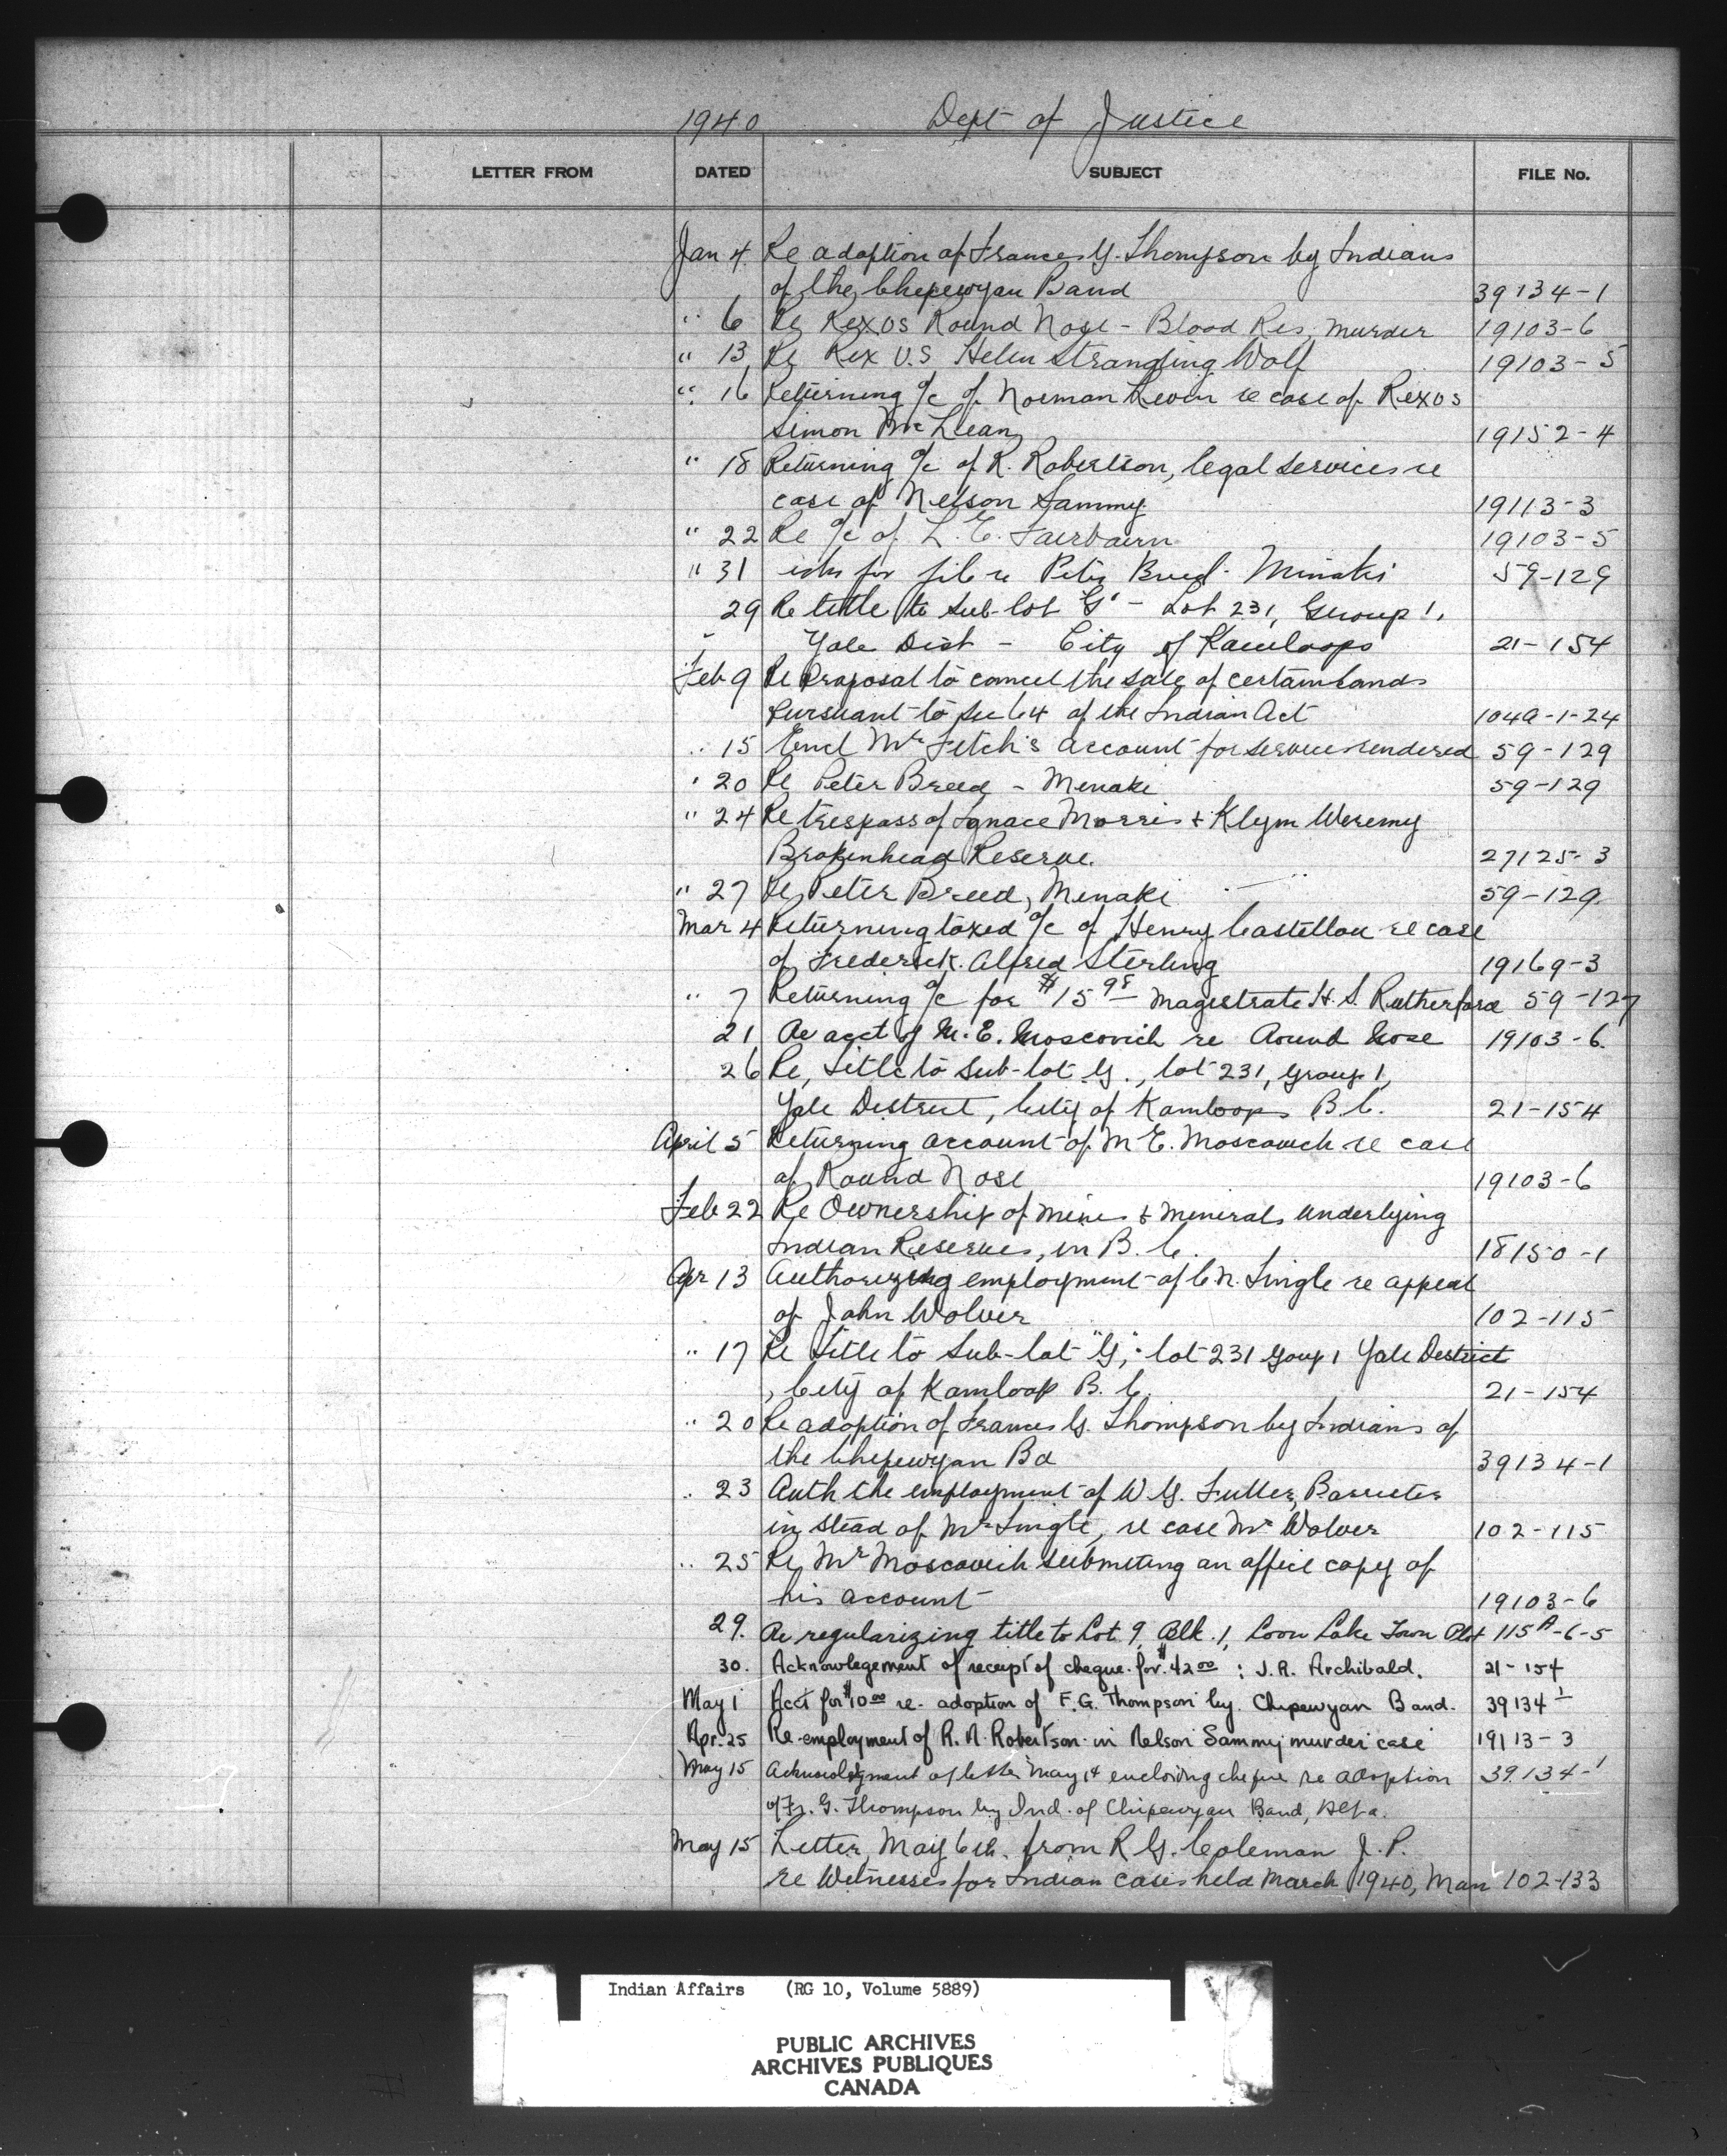 1940 Dept of Justice
LETTER FROM DATED SUBJECT FILE No.
Jan 4 Re adoption of Frances G. Thompson by Indians
of the Chepewyan Band 39134-1
" 6 Re Rex vs Round Nose - Blood Res, murder 19103-6
" 13 Re Rex V.S Helen Strangling Wolf 19103-5
" 16 Returning a/c of Norman re case of Rex vs
Simon McLean 19152-4
" 18 Returning a/c of R. Robertson, legal services re
case of Nelson Sammy 19113-3
" 22 Re a/c of L. E. Fairbairn 19103-5
" 31 asks for file re Peter Breed - Minaki 59-129
29 Re title to Sub-lot "G" - Lot 231, Group 1,
Yale Dist - City of Kamloops 21-154
Feb 9 Re Proposal to cancel the sale of certain lands
pursuant to Sec 64 of the Indian Act 104a-1-24
" 15 Encl Mr Fitch's account for services rendered 59-129
" 20 Re Peter Breed - Menaki 59-129
" 24 Re trespass of Ignace Morris & Klym Weremy
Brokenhead Reserve. 27125-3
" 27 Re Peter Breed, Menaki 59-129
Mar 4 Returning taxed a/c of Henry Castellou re case
of Frederick Alfred Sterling 19169-3
" 7 Returning a/c for $15 98 - Magistrate H. S. Rutherford 59-127
21 Re acct of M. E. Moscovich re Round Nose 19103-6.
26 Re, title to Sub-lot G., lot 231, Group 1,
Yale District, City of Kamloops B.C. 21-154
April 5 Returning account of M E. Moscovich re case
of Round Nose 19103-6
Feb 22 Re Ownership of mines & minerals underlying
Indian Reserves, in B.C. 18150-1
Apr 13 Authorizing employment of C N. Lingle re appeal
of John Wolver 102-115
" 17 Re Title to Sub-lot "G", lot 231 Goup 1 Yale District
, City of Kamloop B.C. 21-154
" 20 Re adoption of Frances G. Thompson by Indians of
the Chepewyan Bd 39134-1
" 23 Auth the employment of W G. Fuller, Barrister
in stead of Mr Lingle, re case Mr Wolver 102-115
" 25 Re, Mr Moscovich submiting an affiel copy of
his account 19103-6
29. Re regularizing title to Lot 9, Blk. 1, Loon Lake Town Plot 115A-6-5
30. Acknowlegement of receipt of cheque for $42 00 : J. A. Archibald. 21-154
May 1 Acct for $10 00 re. adoption of F. G. Thompson by Chipewyan Band. 39134-1
Apr. 25 Re-employment of R. A. Robertson in Nelson Sammy murder case 19113-3
May 15 Acknowledgment of letter May 14 enclosing cheque re adoption 39134-1
of Fr. G. Thompson by Ind. of Chipewyan Band, Alta.
May 15 Letter, May 6th. from R G. Coleman J. P.
re Witnesses for Indian cases held March 1940, Man 102-133
Indian Affairs (RG 10, Volume 5889)
PUBLIC ARCHIVES
ARCHIVES PUBLIQUES
CANADA